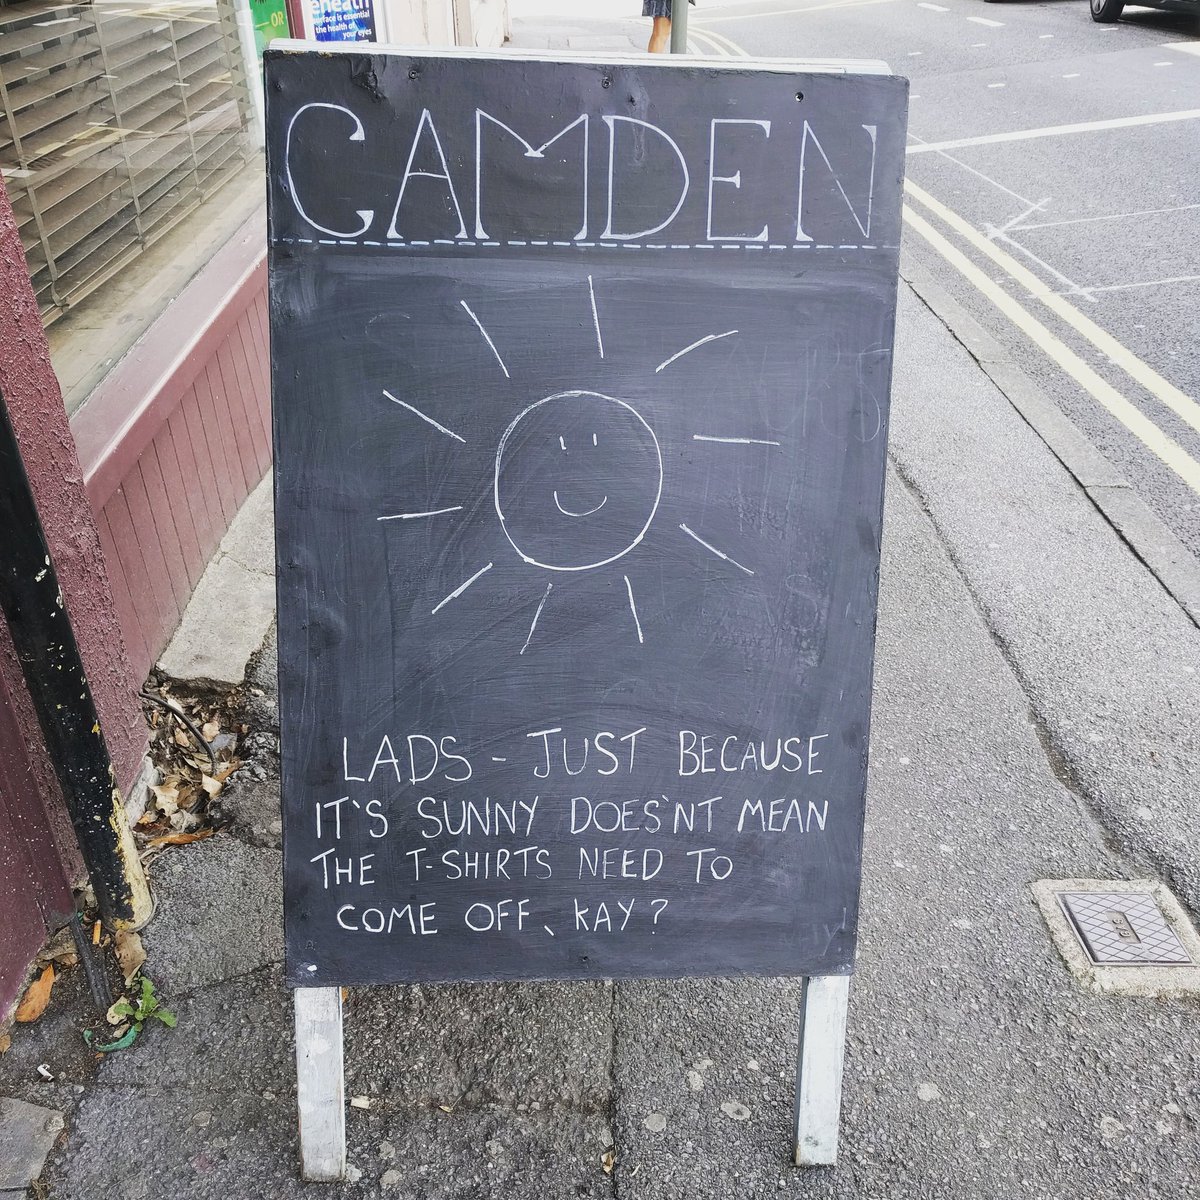 OR
eneath
surface is essential
the health of
your eyes
CAMDEN
LADS - JUST BECAUSE
IT'S SUNNY DOES'NT MEAN
THE T-SHIRTS NEED TO
COME OFF, KAY?